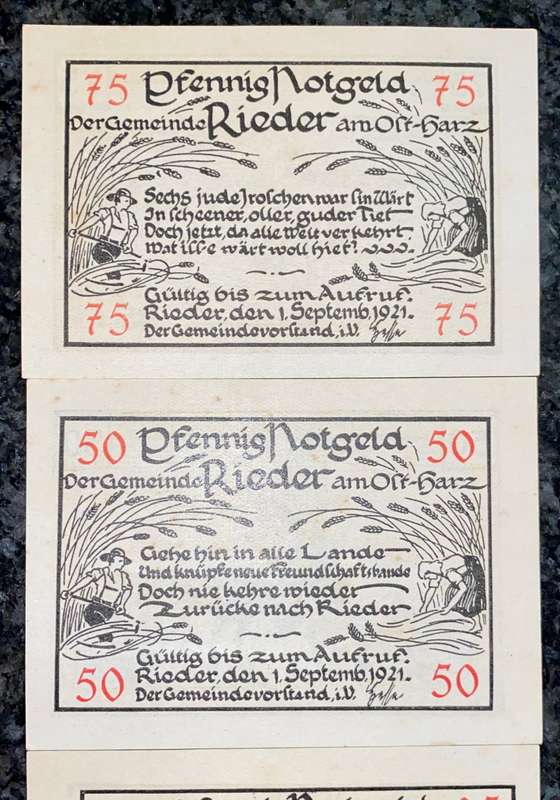 75 Pfennig Notgeld 75
Der Gemeinde Rieder am Ost-Harz
Sechs jude Jroschen war sin Wärt
In scheener, oller, guder Tiet
Doch jetzt, da alle Welt verkehrt
Wat iss'e wärt woll hiet?
Gültig bis zum Aufruf.
75 Rieder, den 1. Septemb. 1921. 75
Der Gemeindevorstand, i.V. Hesse
50 Pfennig Notgeld 50
Der Gemeinde Rieder am Ost-Harz
Gehe hin in alle Lande
Und knüpfe neue Freundschaftsbande
Doch nie kehre wieder
Zurücke nach Rieder
Gültig bis zum Aufruf.
50 Rieder, den 1. Septemb. 1921. 50
Der Gemeindevorstand, i.V. Hesse